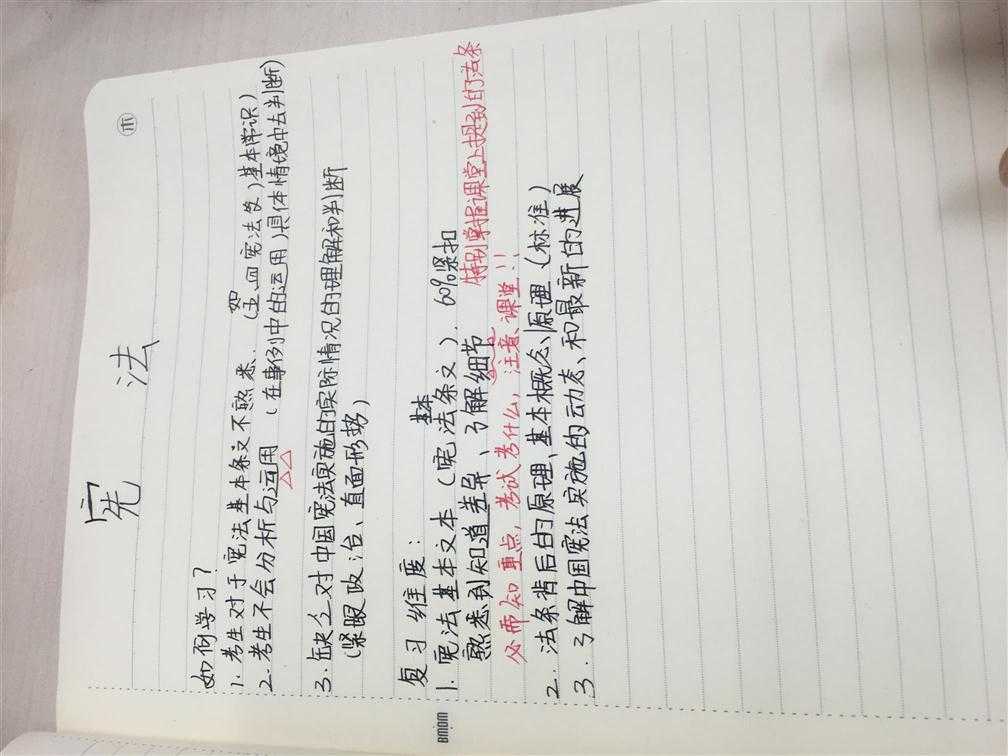 宪 法
如何学习?
1. 考生对于宪法基本条文不熟悉. (空回宪法文)基本常识)
2. 考生不会分析与运用 (在事例中的运用)具体情境中去判断)
3. 缺乏对中国宪法实施的实际情况的理解和判断
(紧跟政治、直面形势)
复习维度:
1. 宪法基本文本(宪法基本条文). 60%紧扣
熟悉到知道差异、了解细节 特别掌握课堂上提到的法条
必需知重点, 考试考什么, 注意课堂!!
2. 法条背后的原理、基本概念、原理(标准)
3. 了解中国宪法实施的动态、和最新的进展
bmow